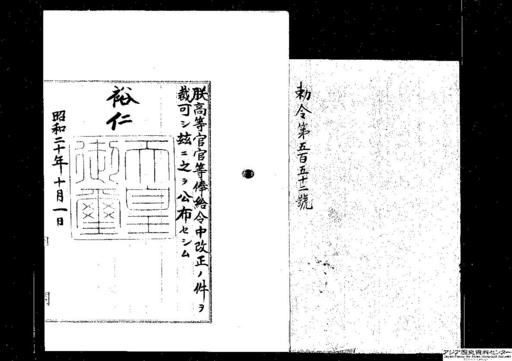 勅令第五百五十二號
朕高等官官等俸給令中改正ノ件ヲ
裁可シ玆ニ之ヲ公布セシム
裕仁
天皇
御璽
昭和二十年十月一日
アジア歴史資料センター